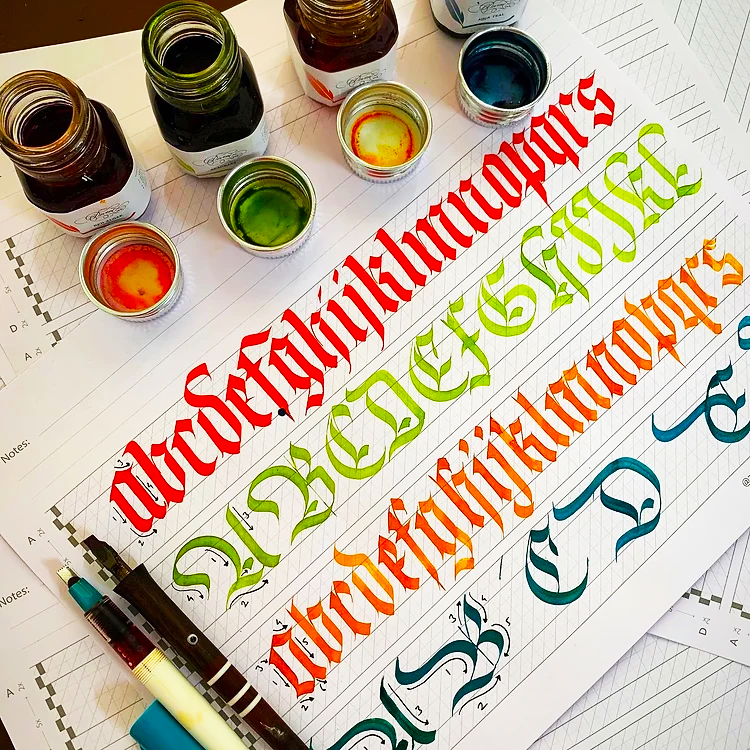 abcdefghijklmnopqrs
ABCDEFGHIJKL
abcdefghijklmnopqrs
A B C D E
Notes:
Notes: